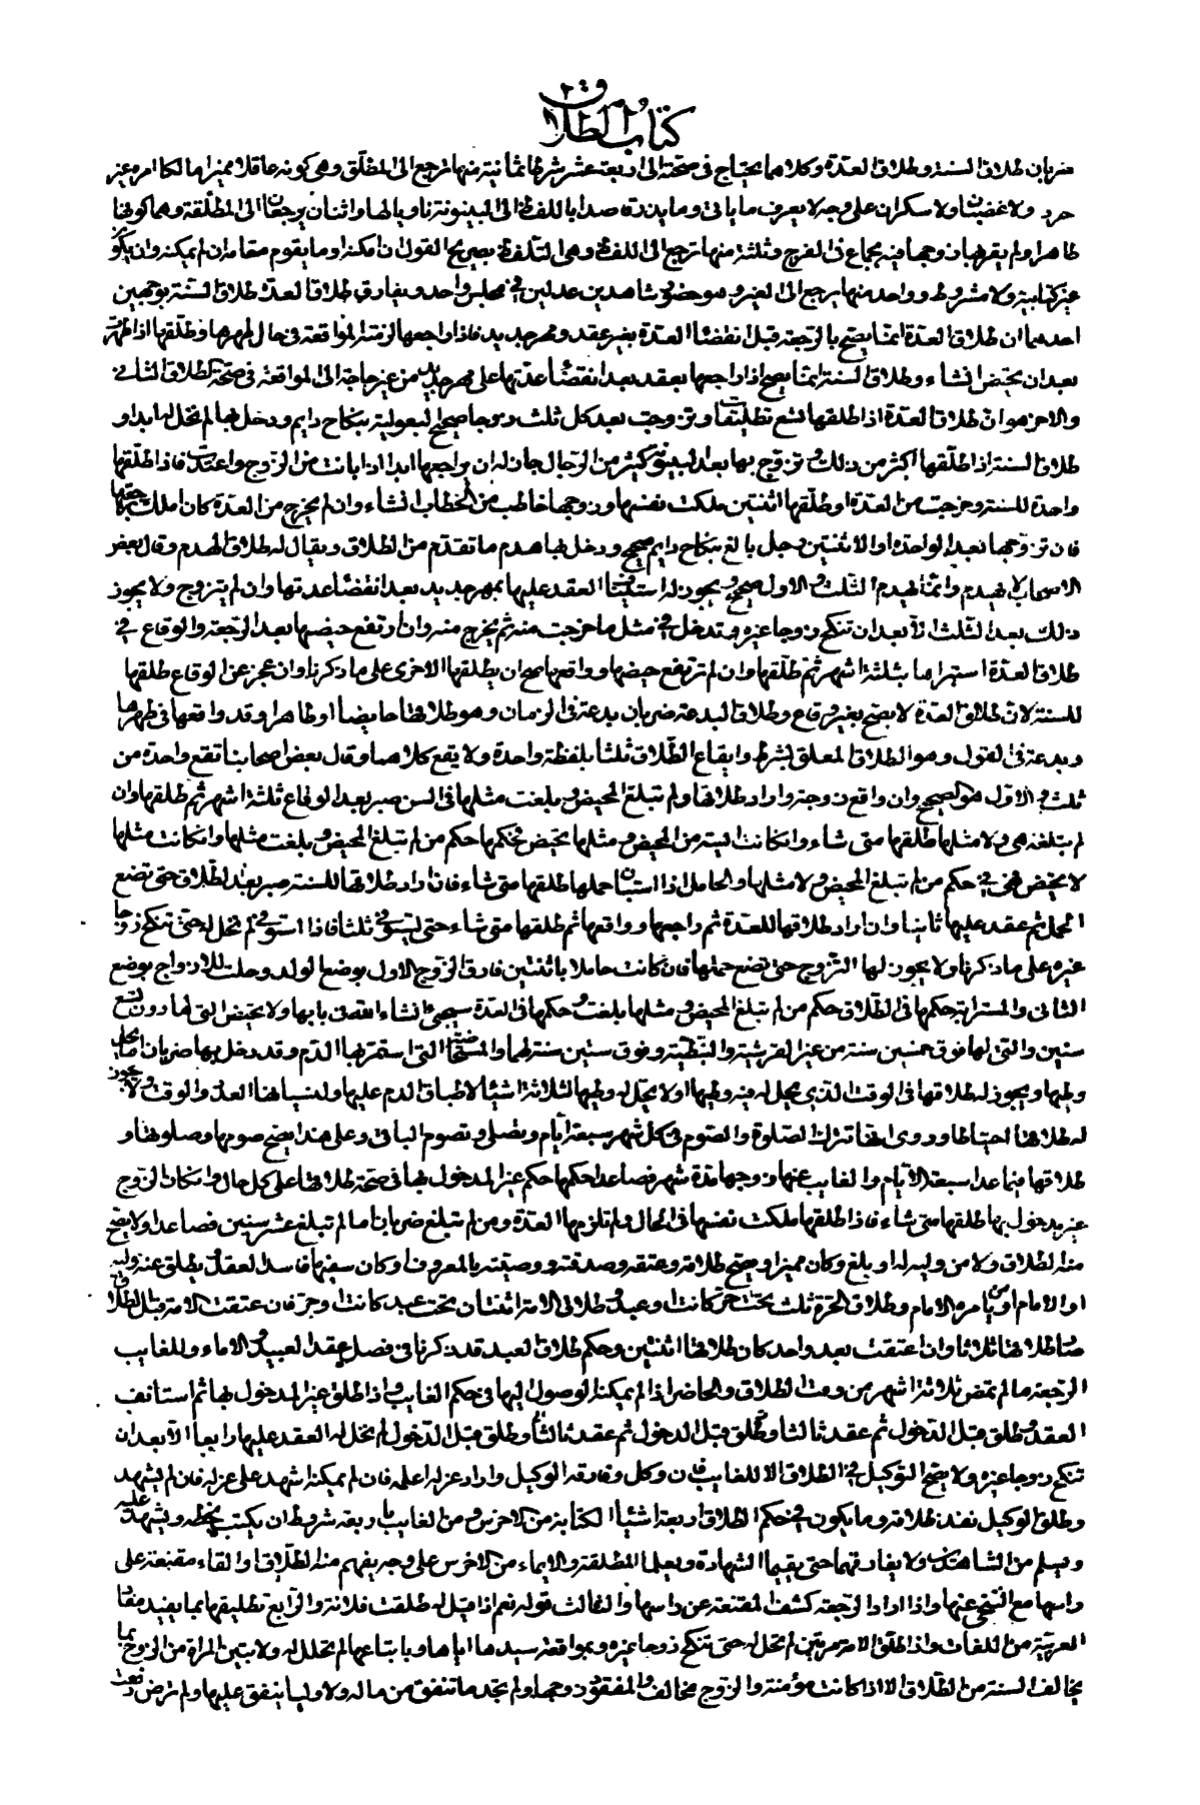 كتاب الطلاق
ضربان طلاق السنة وطلاق العدة وكلاهما يحتاج في صحته الى اربعة عشر شرطا ثمانية منها ترجع الى المطلق وهي كونه عاقلا مميزا مالكا امره غير
حرد ولا غضبان ولا سكران على وجه لا يعرف ما ياتى وما يذر قاصدا باللفظ الى البينونة ناويا لها واثنان يرجعان الى المطلقة وهما كونها
طاهرا ولم يقربها زوجها فيه بجماع في الفرج وثلثة منها ترجع الى اللفظ وهي التلفظ بصريح القول ان امكنه وما يقوم مقامه ان لم يمكنه وان يكون
غير كناية ولا مشروط وواحد منها يرجع الى الغير وهو حضور شاهدين عدلين في مجلس واحد ويفارق طلاق العدة طلاق السنة بوجهين
احدهما ان طلاق العدة انما يصح بالرجعة قبل انقضاء العدة بغير عقد ومهر جديد فاذا راجعها لزمته المواقعة في حال طهرها وطلقها اذا طهرت
بعد ان تحيض ان شاء وطلاق السنة انما يصح اذا راجعها بعقد بعد انقضاء عدتها على مهر جديد من غير حاجة الى المواقعة في صحة الطلاق الثاني
والاخر هو ان طلاق العدة اذا طلقها تسع تطليقات وتزوجت بعد كل ثلث زوجا صحيح البعولية بنكاح دايم ودخل بها لم تحل له ابدا و
طلاق السنة اذا طلقها اكثر من ذلك وتزوج بها بعد البينونة كثير من الرجال جاز له ان يراجعها ابدا اذا بانت من الزوج واعتدت فاذا طلقها
واحدة للسنة وخرجت من العدة او طلقها اثنتين ملكت نفسها وزوجها خاطب من الخطاب ان شاء وان لم يخرج من العدة كان املك برجعتها
فان تزوجها بعد الواحدة او الاثنتين رجل بالغ بنكاح دايم صحيح ودخل بها هدم ما تقدم من الطلاق ويقال له طلاق الهدم وقال بعض
الاصحاب لا يهدم وانما يهدم الثلث والاول صحيح ويجوز له استيناف العقد عليها بمهر جديد بعد انقضاء عدتها وان لم يتزوج ولا يجوز
ذلك بعد الثلث الا بعد ان تنكح زوجا غيره وتدخل في مثل ما خرجت منه ثم يخرج منه وان ارتفع حيضها بعد الرجعة والوقاع في
طلاق العدة استبراها بثلثة اشهر ثم طلقها وان لم ترتفع حيضها وواقعها صح ان يطلقها الاخرى على ما ذكرنا وان عجز عن الوقاع طلقها
للسنة لان طلاق العدة لا يصح بغير وقاع وطلاق البدعة ضربان بدعة في الزمان وهو طلاقها حايضا او طاهرا وقد واقعها في طهرها
وبدعة في القول وهو الطلاق المعلق بشرط وايقاع الطلاق ثلثا بلفظة واحدة ولا يقع كلاهما وقال بعض اصحابنا تقع واحدة من
ثلث والاول هو الصحيح وان واقع زوجته واراد طلاقها ولم تبلغ المحيض وبلغت مثلها في السن صبر بعد الوقاع ثلثة اشهر ثم طلقها وان
لم تبلغه هي ولا مثلها طلقها متى شاء وان كانت ايسة من المحيض ومثلها تحيض فحكمها حكم من لم تبلغ المحيض وبلغت مثلها وان كانت مثلها
لا يحيض فهي في حكم من لم تبلغ المحيض ولا مثلها والحامل اذا استبان حملها طلقها متى شاء فان اراد طلاقها للسنة صبر بعد الطلاق حتى تضع
الحمل ثم عقد عليها ثانيا وان اراد طلاقها للعدة ثم راجعها وواقعها ثم طلقها متى شاء حتى يستوفي ثلثا فاذا استوفي لم تحل له حتى تنكح زوجا
غيره على ما ذكرنا ولا يجوز لها التزوج حتى تضع حملها فان كانت حاملا باثنتين فارق الزوج الاول بوضع الولد وحلت للازواج بوضع
الثاني والمسترابة حكمها في الطلاق حكم من لم تبلغ المحيض ومثلها بلغت وحكمها في العدة سيجئ ان شاء الله في بابها ولا يحيض التي لها دون تسع
سنين والتي لها فوق خمسين سنة من غير القرشية والنبطية وفوق ستين سنة لهما والمستحاضة التي استمر بها الدم وقد دخل بها ضربان اما يحل
وطيها ويجوز له طلاقها في الوقت الذي يحل له فيه وطيها او لا يحل له وطيها لثلاثة اشياء لاطباق الدم عليها ولنسيانها العدد والوقت ولا يجوز
له طلاقها احتياطا وروى انها تترك الصلوة والصوم في كل شهر سبعة ايام وتصلى وتصوم الباقي وعلى هذا يصح صومها وصلوتها و
طلاقها فيما عدا سبعة الايام والغايب عنها زوجها مدة شهر فصاعدا حكمها حكم غير المدخول بها في صحة طلاقها على كل حال وان كان الزوج
غير مدخول بها طلقها متى شاء فاذا طلقها ملكت نفسها في الحال ولم تلزمها العدة ومن لم تبلغ ضربان اما لم تبلغ عشر سنين فصاعدا ولا يصح
منه الطلاق ولا من وليه له او بلغ وكان مميزا ويصح طلاقه وعتقه وصدقته ووصيته بالمعروف او كان سفيها فاسد العقل يطلق عنه وليه
او الامام او من يأمره الامام وطلاق الحرة ثلث تحت حر كانت او عبد وطلاق الامة اثنتان تحت عبد كانت او حر فان عتقت الامة قبل الطلاق
صار طلاقها ثلاثا وان اعتقت بعد واحد كان طلاقها اثنتين وحكم طلاق العبد قد ذكرنا في فصل عقد العبيد والاماء وللغايب
الرجعة ما لم تمض ثلاثة اشهر من وقت الطلاق والحاضر اذا لم يمكنه الوصول اليها في حكم الغايب واذا طلق غير المدخول بها ثم استانف
العقد وطلق قبل الدخول ثم عقد ثالثا وطلق قبل الدخول لم تحل له العقد عليها رابعا الا بعد ان
تنكح زوجا غيره ولا يصح التوكيل في الطلاق الا للغايب فان وكل وفارقه الوكيل واراد عزله اعلمه فان لم يمكنه اشهد على عزله فان لم يشهد
وطلق الوكيل نفذ طلاقه وما يكون في حكم الطلاق اربعة اشياء الكتابة من الاخرس ومن الغايب باربعة شروط ان يكتب بخطه ويشهد عليه
ويسلم من الشاهدين ولا يفارقهما حتى يقيما الشهادة ويعلما المطلقة والايماء من الاخرس على وجه يفهم منه الطلاق او القاء مقنعة على
راسها مع التنحي عنها واذا اراد الرجعة كشف المقنعة عن راسها والثالث قوله نعم اذا قيل له طلقت فلانة والرابع تطليقها بما يفيد مفاد
العربية من اللغات واذا طلق الامة مرتين لم تحل له حتى تنكح زوجا غيره وبمواقعة سيدها اياها وبابتياعها لم تحلل له ولا تبين المراة من الزوج بما
يخالف السنة من الطلاق الا اذا كانت مؤمنة والزوج مخالف والمفقود زوجها ولم يجد ما تنفق من ماله ولا وليا ينفق عليها ولم ترض رفعت